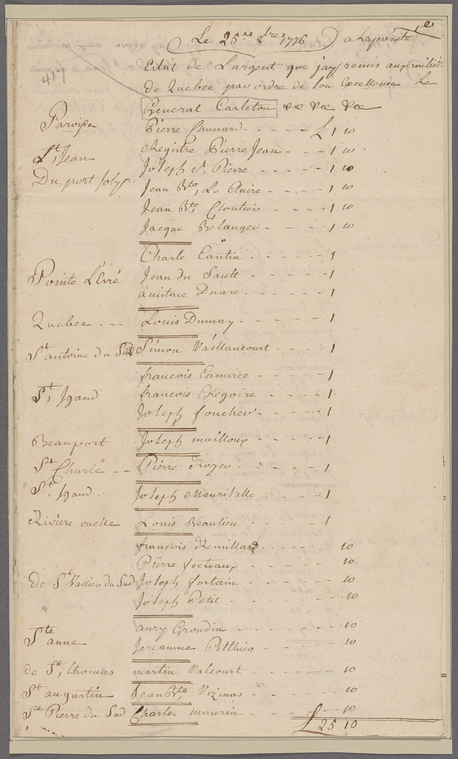 Le 25 8bre 1776 a Lapointe
Etat de Largent que jay remis aux
de Quebec par ordre de Son Excellence Le
General Carleton &c &c &c
Paroisse Pierre £ 1 10
Pierre Jean 1 10
St Jean Joseph St Pierre 1 10
Du port Joly Jean Bte Le 1 10
Jean Bte Cloutier 1 10
Jacque Belanger 1 10
Charle Cantin 1
Pointe Lévé Jean du Sault 1
1
Quebec Louis Dumay 1
St antoine du Sud Simon Vaillancourt 1
francois 1
St Igand francois Gregoire 1
Joseph foucher 1
Beauport Joseph mailloux 1
St Charle Pierre Royer 1
St Igand Joseph 1
Rivière ouelle Louis Beaulieu 1
francois Remillard 10
Pierre 10
De St Vallier du Sud Joseph fortain 10
Joseph Petit 10
Ste anne Grondin 10
10
de St thomas martin Valcourt 10
St augustin Jean Bte 10
St Pierre du Sud Charles maurin 10
£ 25 10